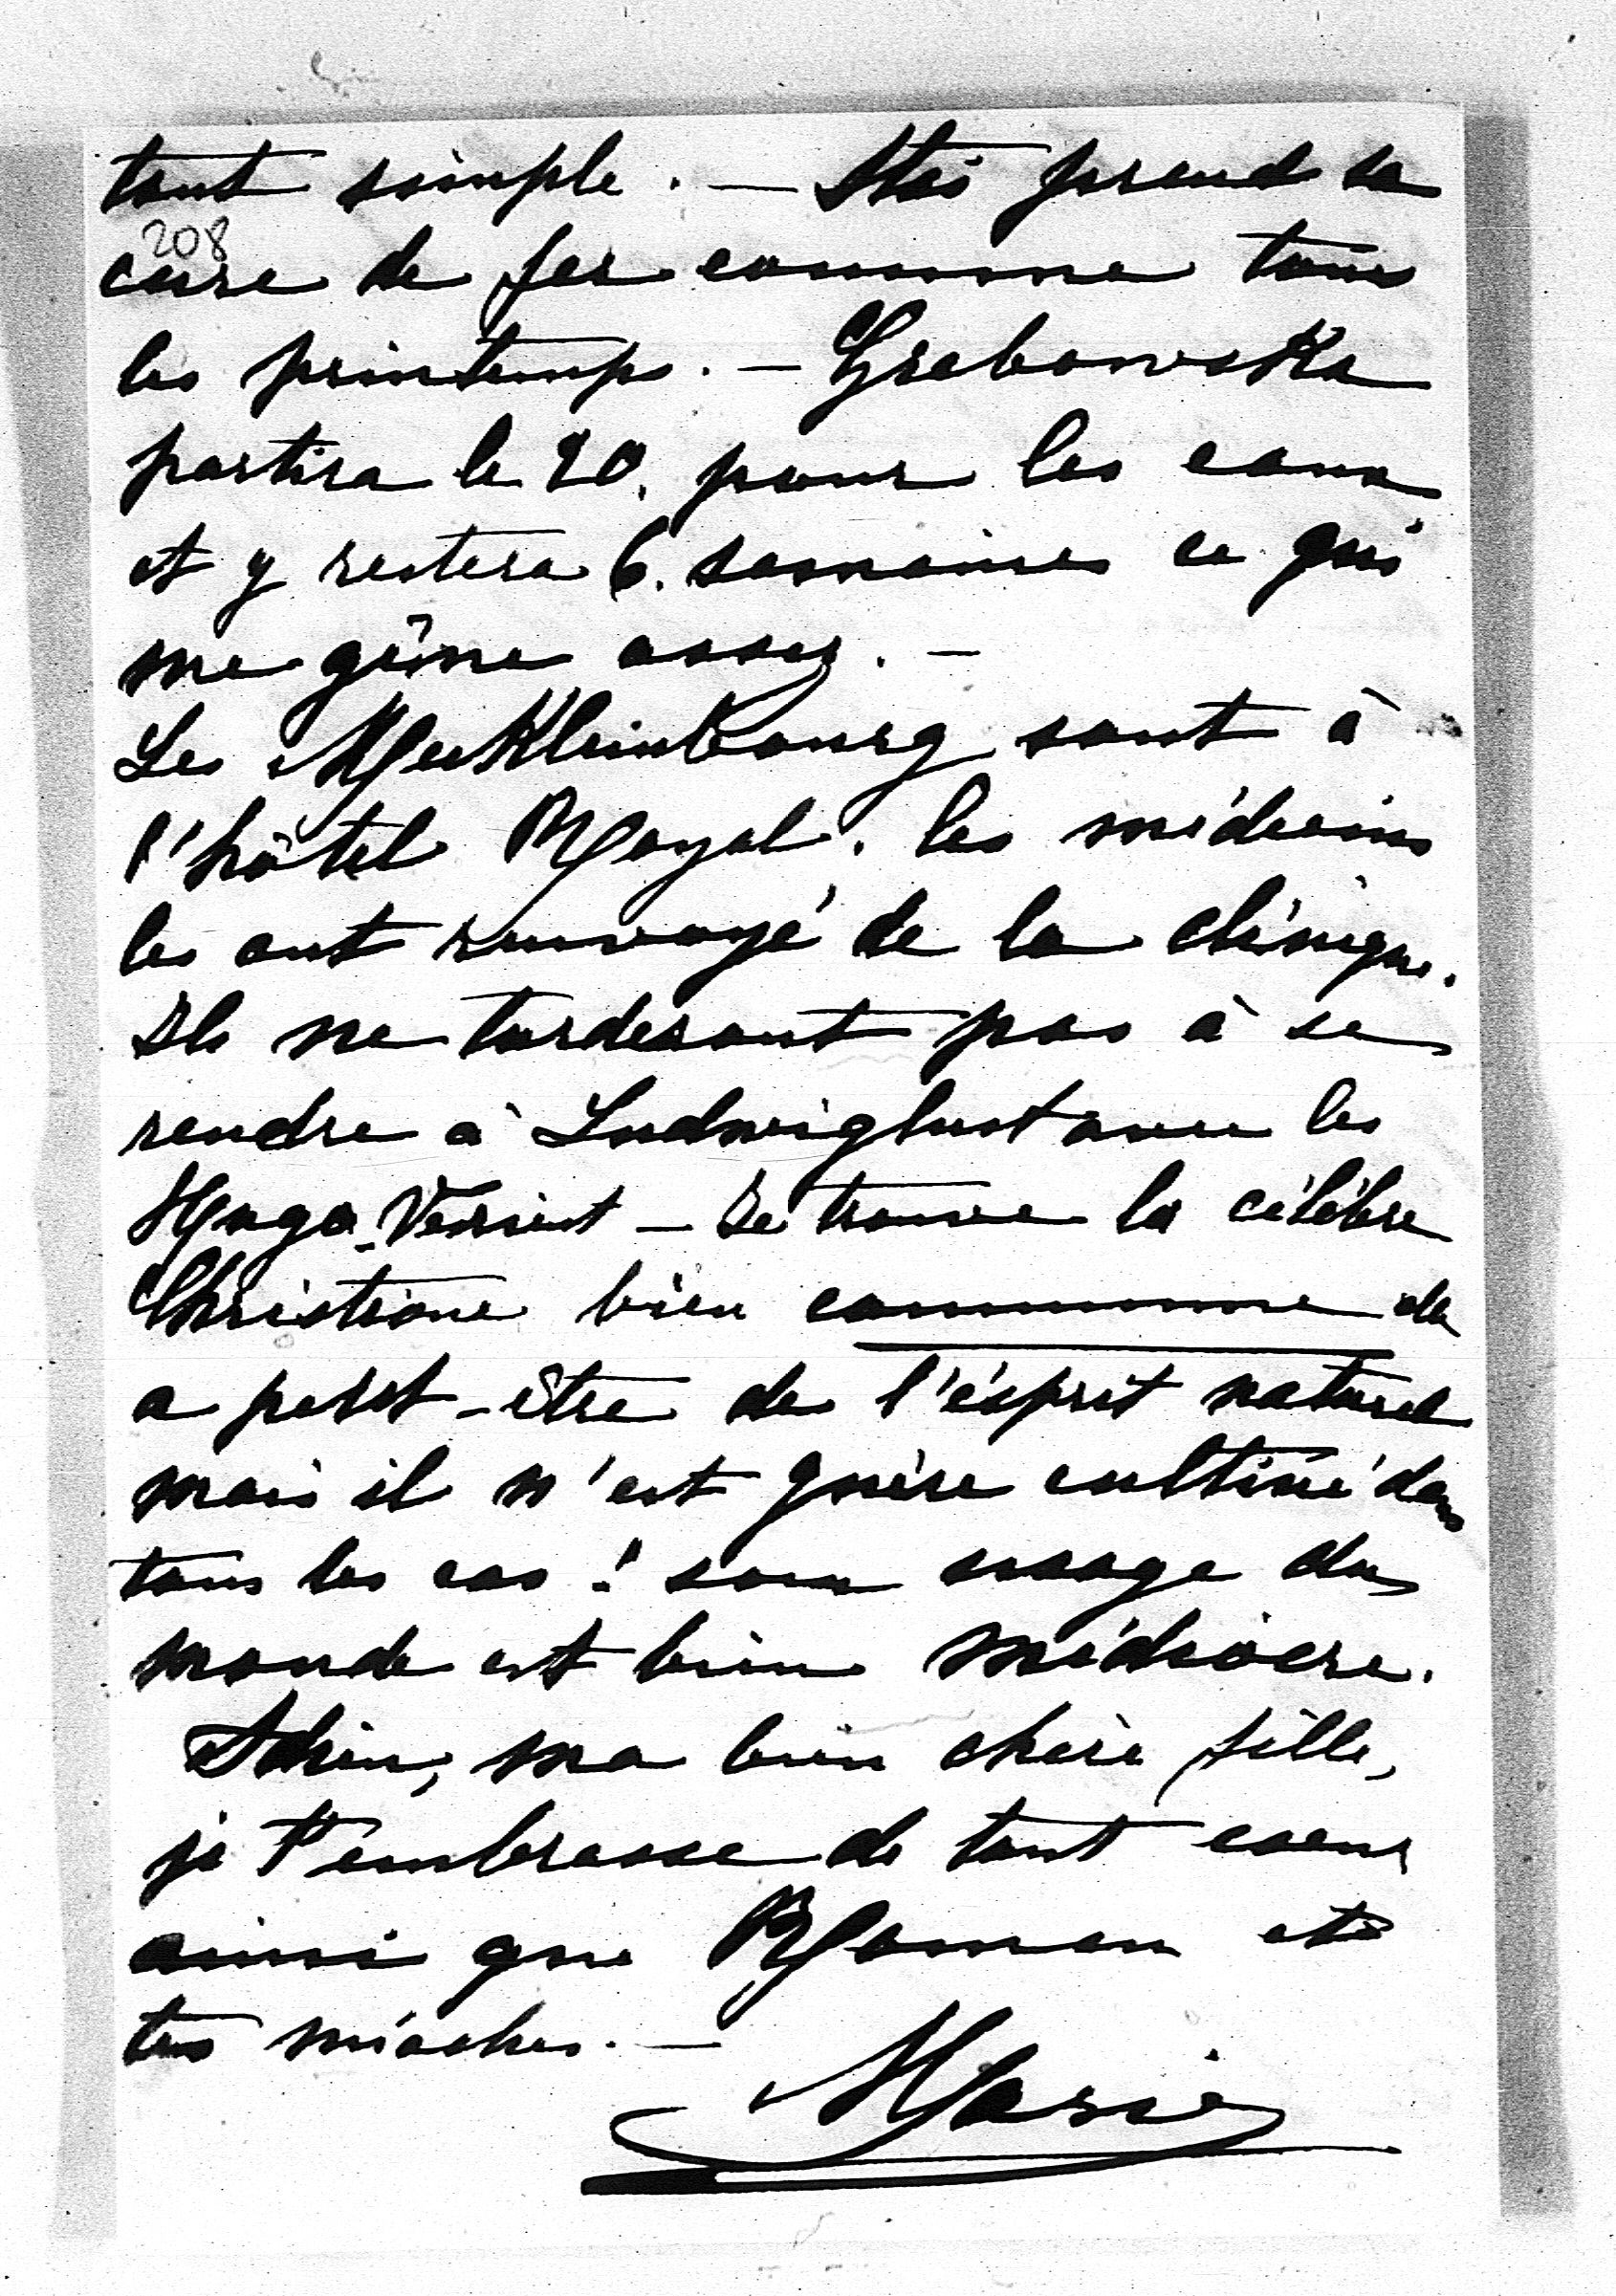 tout simple. — Stas prend sa
208
cure de fer comme tous
les printemps. — Grabowska
partira le 20. pour les eaux
et y restera 6. semaines ce qui
me gêne assez. —
Les Mecklembourg sont à
l'hôtel Royal. les médecins
les ont renvoyé de la clinique.
Ils ne tarderont pas à se
rendre à Ludwigslust avec les
Hugo. — Je trouve la célèbre
Christiane bien commune elle
a peut-être de l'ésprit naturel
mais il n'est guère cultivé dans
tous les cas! son usage du
monde est bien médiocre.
Adieu, ma bien chère fille,
je t'embrasse de tout coeur
ainsi que Roman et
tes mioches. —
Marie